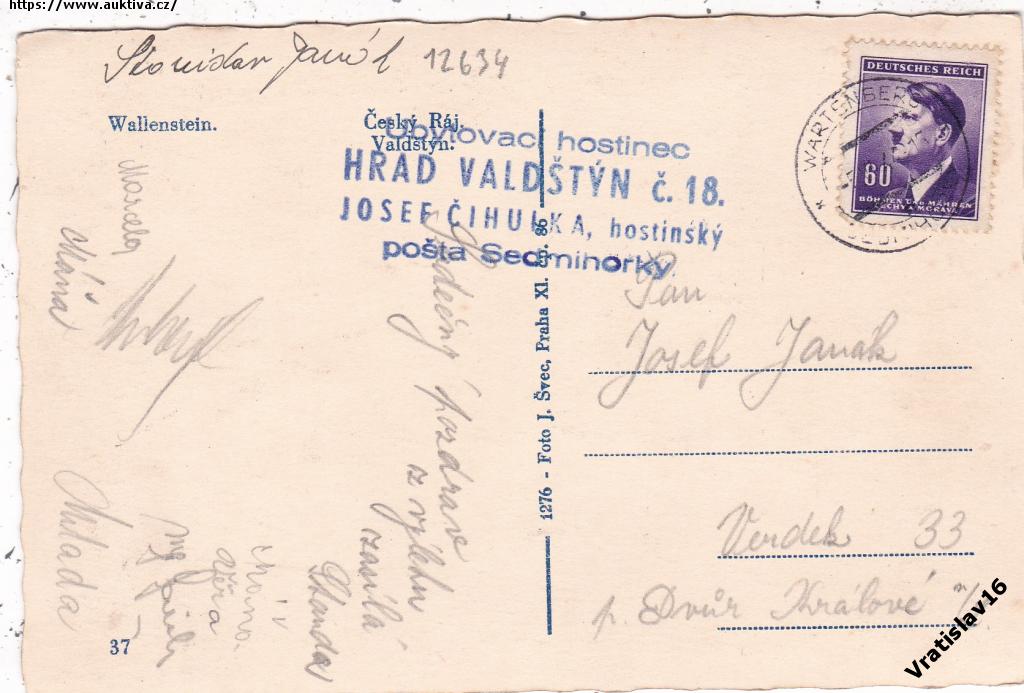 https://www.auktiva.cz/
12634
Wallenstein.
Český Ráj.
Valdštýn.
Ubytovací hostinec
HRAD VALDŠTÝN č. 18.
JOSEF ČIHULKA, hostinský
pošta Sedmihorky.
DEUTSCHES REICH
60
BÖHMEN UND MÄHREN
ČECHY A MORAVA
WARTENBERG
Srdečný pozdrav
z výletu
zasílá
Marcela
Mána
Milada
Věra
1276 - Foto J. Švec, Praha XI. čp. 86
Pan
Josef Janák
Verdek 33
p. Dvůr Králové
37
Vratislav16